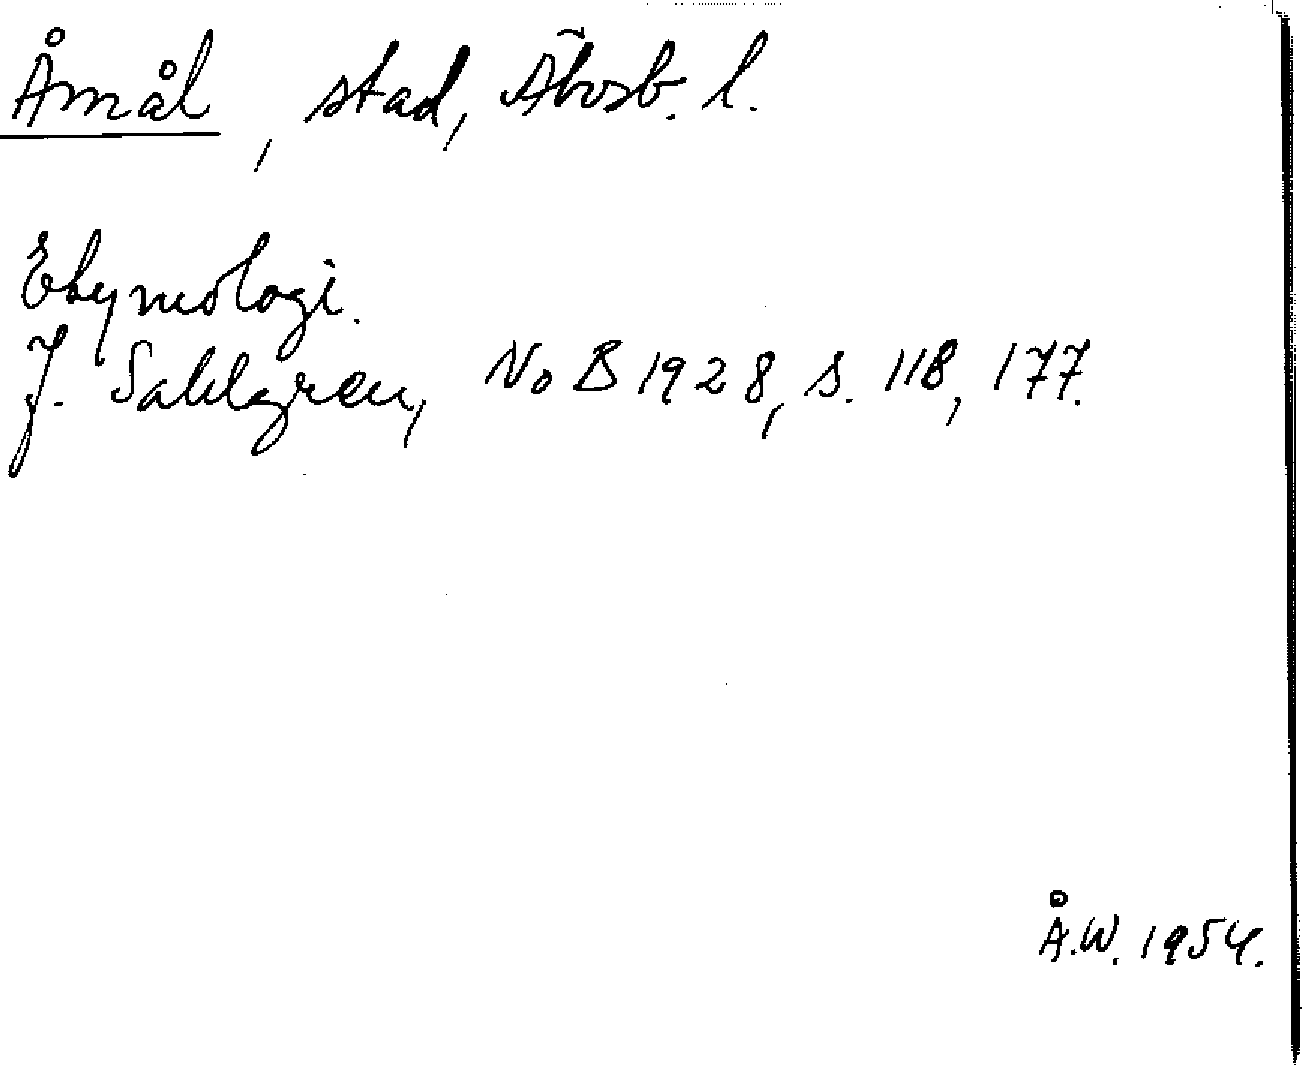 Åmål, stad, Älvsb. l.
Etymologi.
J. Sahlgren, NoB 1928, s. 118, 177.
Å.W. 1954.